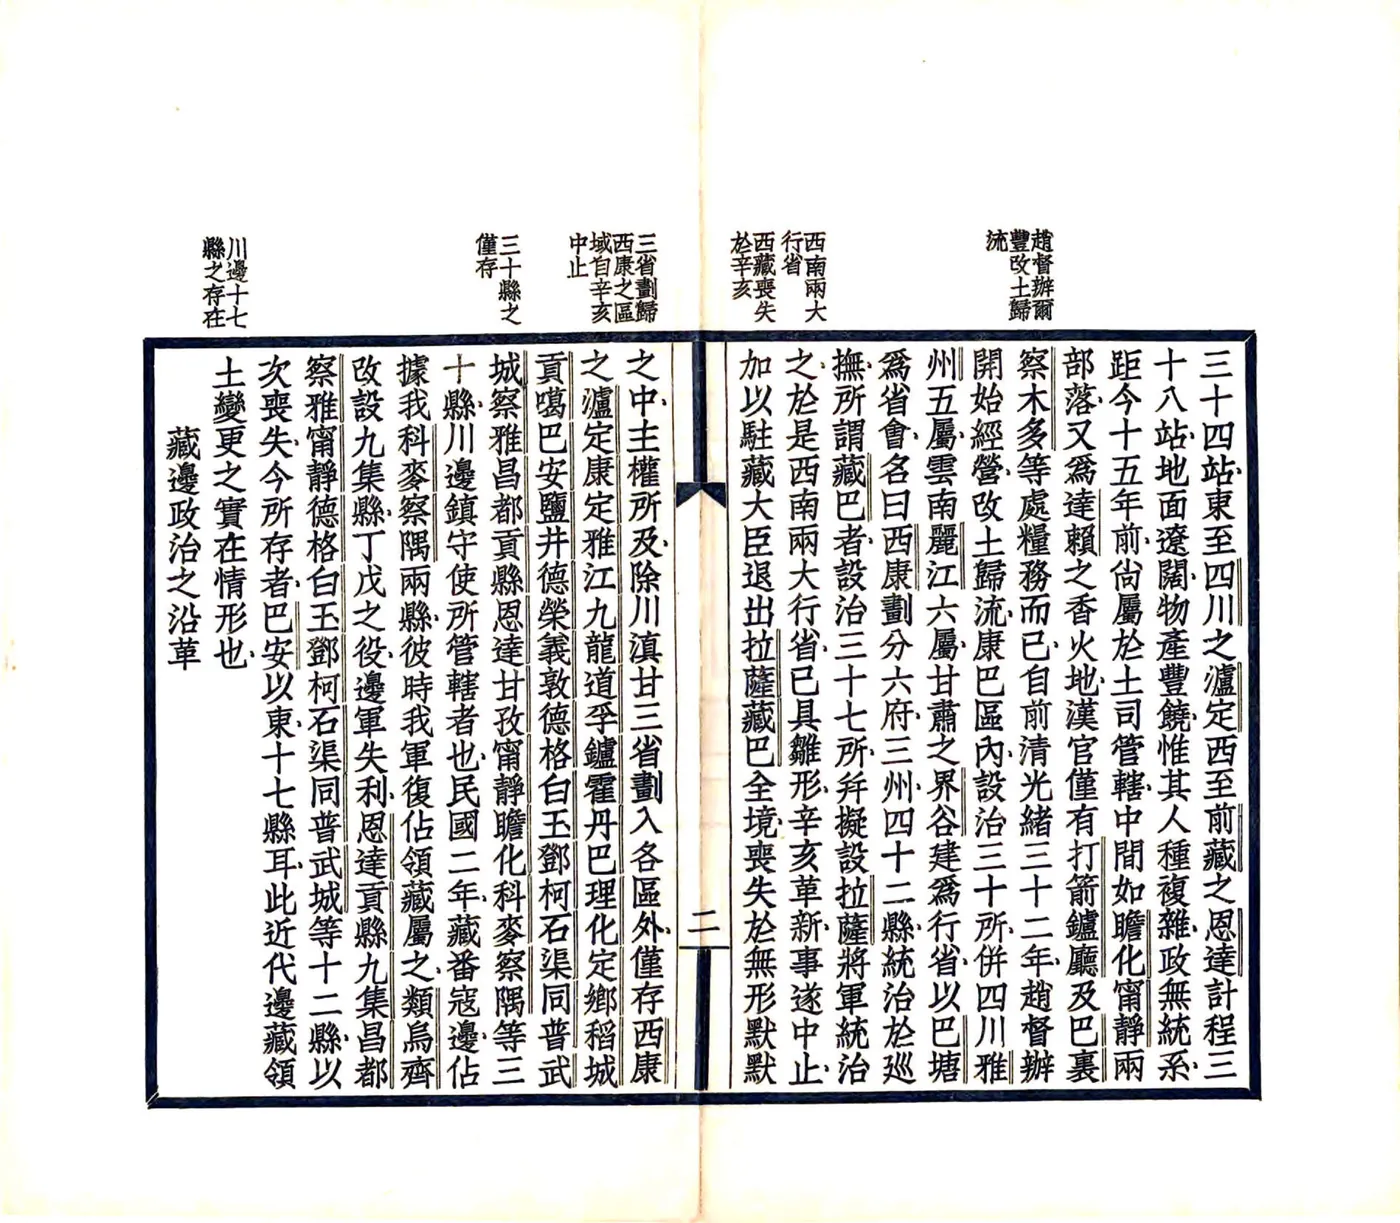 趙督辦爾
豐改土歸
流
西南兩大
行省
西藏喪失
於辛亥
三十四站東至四川之瀘定西至前藏之恩達計程三
十八站地面遼闊物產豐饒惟其人種複雜政無統系
距今十五年前尚屬於土司管轄中間如瞻化甯靜兩
部落又爲達賴之香火地漢官僅有打箭鑪廳及巴裏
察木多等處糧務而已自前清光緒三十二年趙督辦
開始經營改土歸流康巴區內設治三十所併四川雅
州五屬雲南麗江六屬甘肅之界谷建爲行省以巴塘
爲省會名曰西康劃分六府三州四十二縣統治於巡
撫所謂藏巴者設治三十七所幷擬設拉薩將軍統治
之於是西南兩大行省已具雛形辛亥革新事遂中止
加以駐藏大臣退出拉薩藏巴全境喪失於無形默默
二
三省劃歸
西康之區
域自辛亥
中止
三十縣之
僅存
川邊十七
縣之存在
之中主權所及除川滇甘三省劃入各區外僅存西康
之瀘定康定雅江九龍道孚鑪霍丹巴理化定鄉稻城
貢噶巴安鹽井德榮義敦德格白玉鄧柯石渠同普武
城察雅昌都貢縣恩達甘孜甯靜瞻化科麥察隅等三
十縣川邊鎮守使所管轄者也民國二年藏番寇邊佔
據我科麥察隅兩縣彼時我軍復佔領藏屬之類烏齊
改設九集縣丁戊之役邊軍失利恩達貢縣九集昌都
察雅甯靜德格白玉鄧柯石渠同普武城等十二縣以
次喪失今所存者巴安以東十七縣耳此近代邊藏領
土變更之實在情形也
藏邊政治之沿革